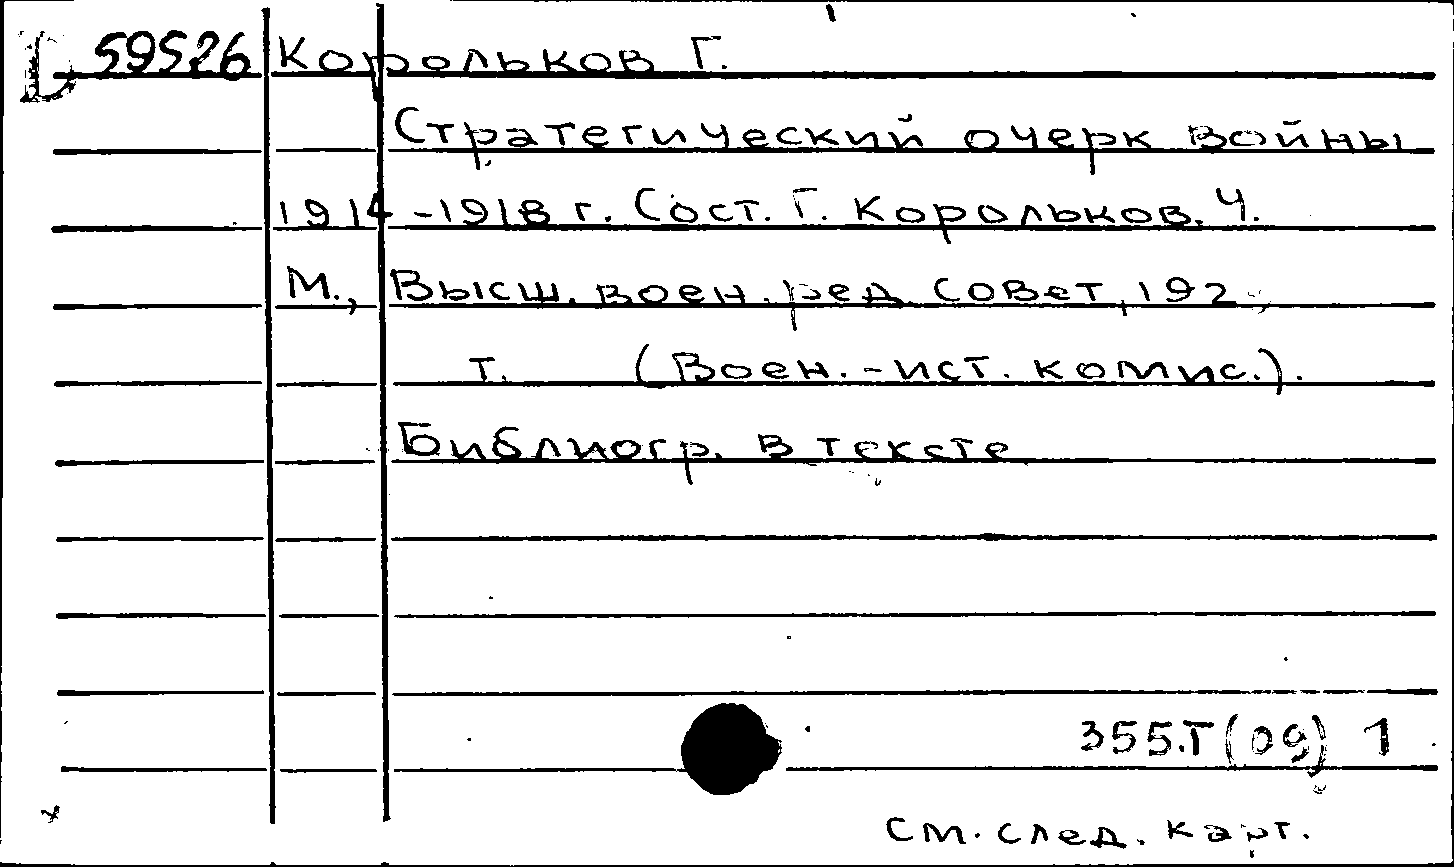 D 59526 Корольков Г.
Стратегический очерк войны
1914-1918 г. Сост. Г. Корольков. Ч.
М., Высш. воен. ред. совет, 192
т. (Воен.-ист. комис.).
Библиогр. в тексте
355.Т(09) 1
см. след. карт.